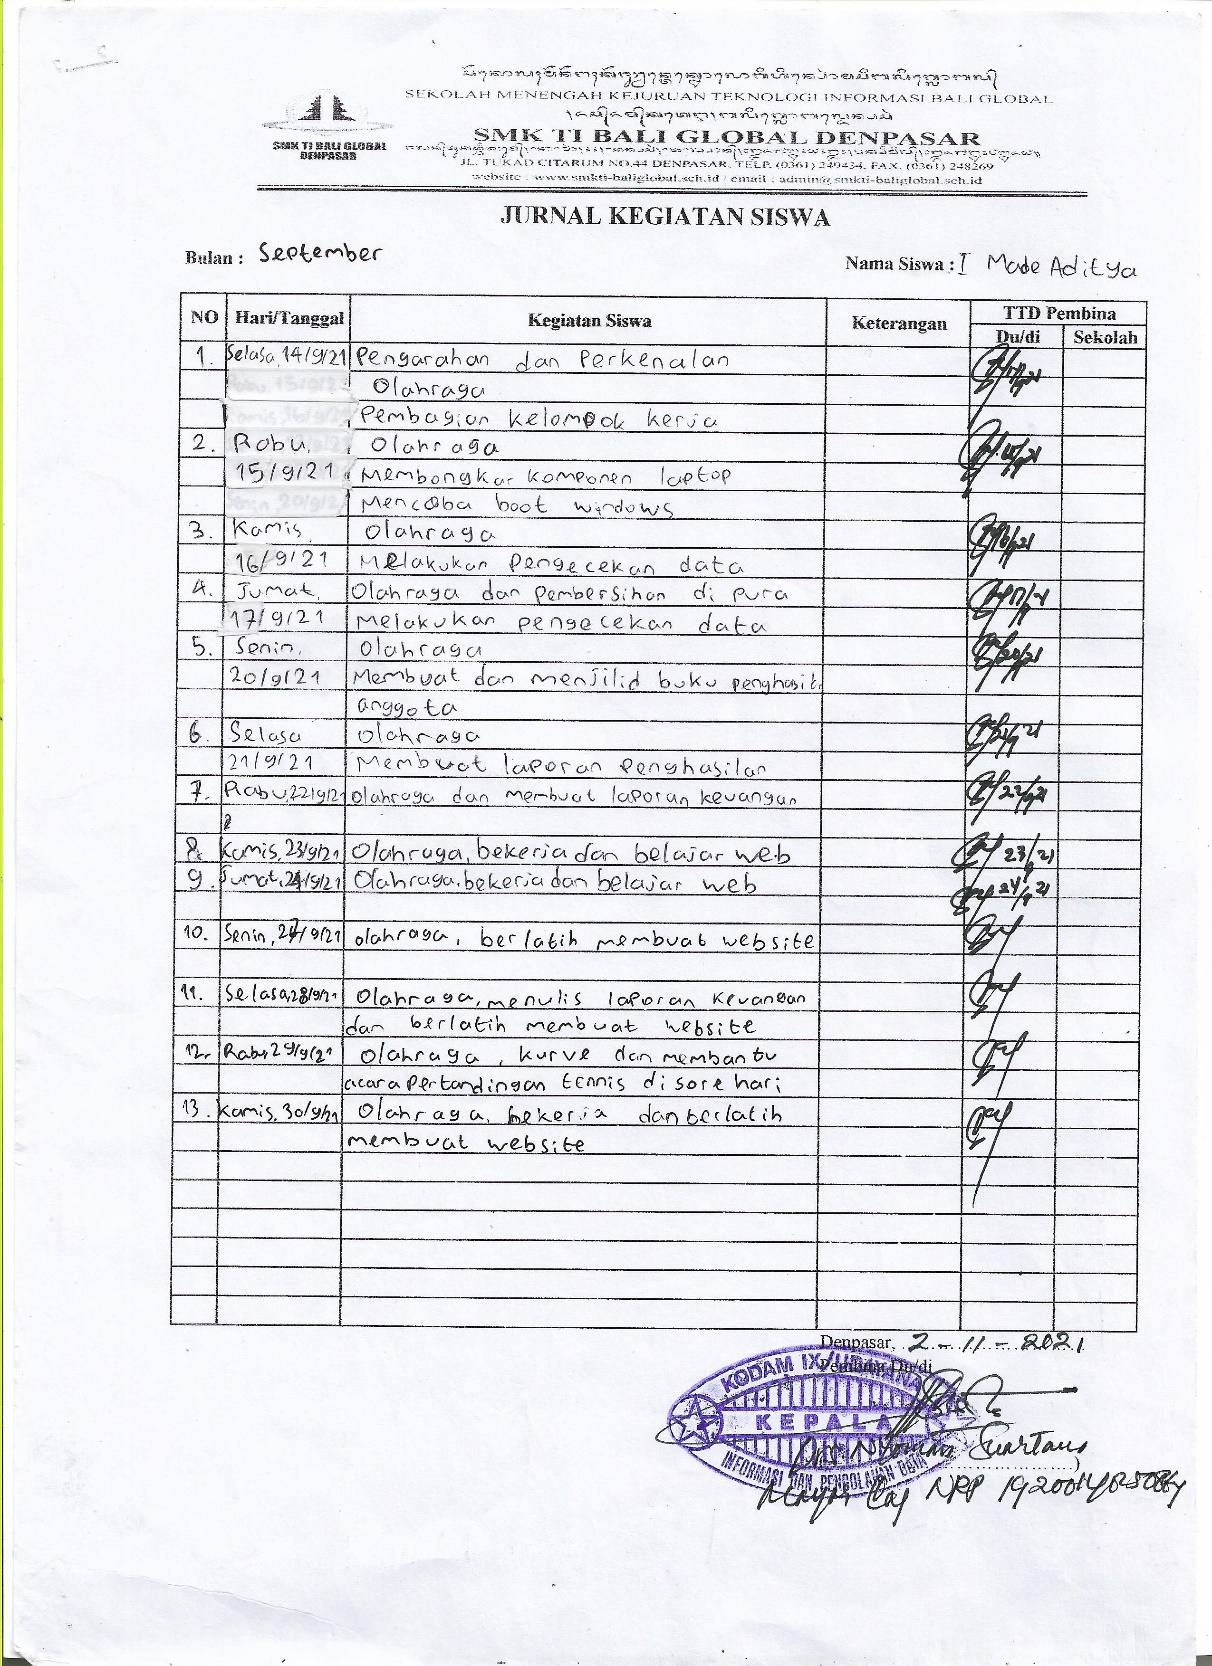 SEKOLAH MENENGAH KEJURUAN TEKNOLOGI INFORMASI BALI GLOBAL
SMK TI BALI GLOBAL DENPASAR
SMK TI BALI GLOBAL
DENPASAR
JL. TUKAD CITARUM NO.44 DENPASAR. TELP. (0361) 249434, FAX. (0361) 248269
website : www.smkti-baliglobal.sch.id / email : admin@smkti-baliglobal.sch.id
JURNAL KEGIATAN SISWA
Bulan : September
Nama Siswa : I Made Aditya
NO Hari/Tanggal Kegiatan Siswa Keterangan TTD Pembina
Du/di Sekolah
1. Selasa, 14/9/21 Pengarahan dan Perkenalan
Olahraga
Pembagian Kelompok kerja
2. Rabu, Olahraga
15/9/21 Membongkar komponen laptop
Mencoba boot windows
3. Kamis, Olahraga
16/9/21 Melakukan Pengecekan data
4. Jumat, Olahraga dan Pembersihan di pura
17/9/21 Melakukan pengecekan data
5. Senin, Olahraga
20/9/21 Membuat dan menjilid buku penghasil
anggota
6. Selasa Olahraga
21/9/21 Membuat laporan Penghasilan
7. Rabu, 22/9/21 Olahraga dan membuat laporan keuangan
8. Kamis, 23/9/21 Olahraga, bekerja dan belajar web 23/9/21
9. Jumat, 24/9/21 Olahraga, bekerja dan belajar web 24/9/21
10. Senin, 27/9/21 olahraga, berlatih membuat website
11. Selasa, 28/9/21 Olahraga, menulis laporan keuangan
dan berlatih membuat website
12. Rabu 29/9/21 Olahraga, kurve dan membantu
acara Pertandingan tennis di sore hari
13. Kamis, 30/9/21 Olahraga, bekerja dan berlatih
membuat website
Denpasar, 2 - 11 - 2021
Pembina Du/di
KODAM IX/UDAYANA
KEPALA
INFORMASI DAN PENGOLAHAN DATA
Nyoman Suartana
NRP